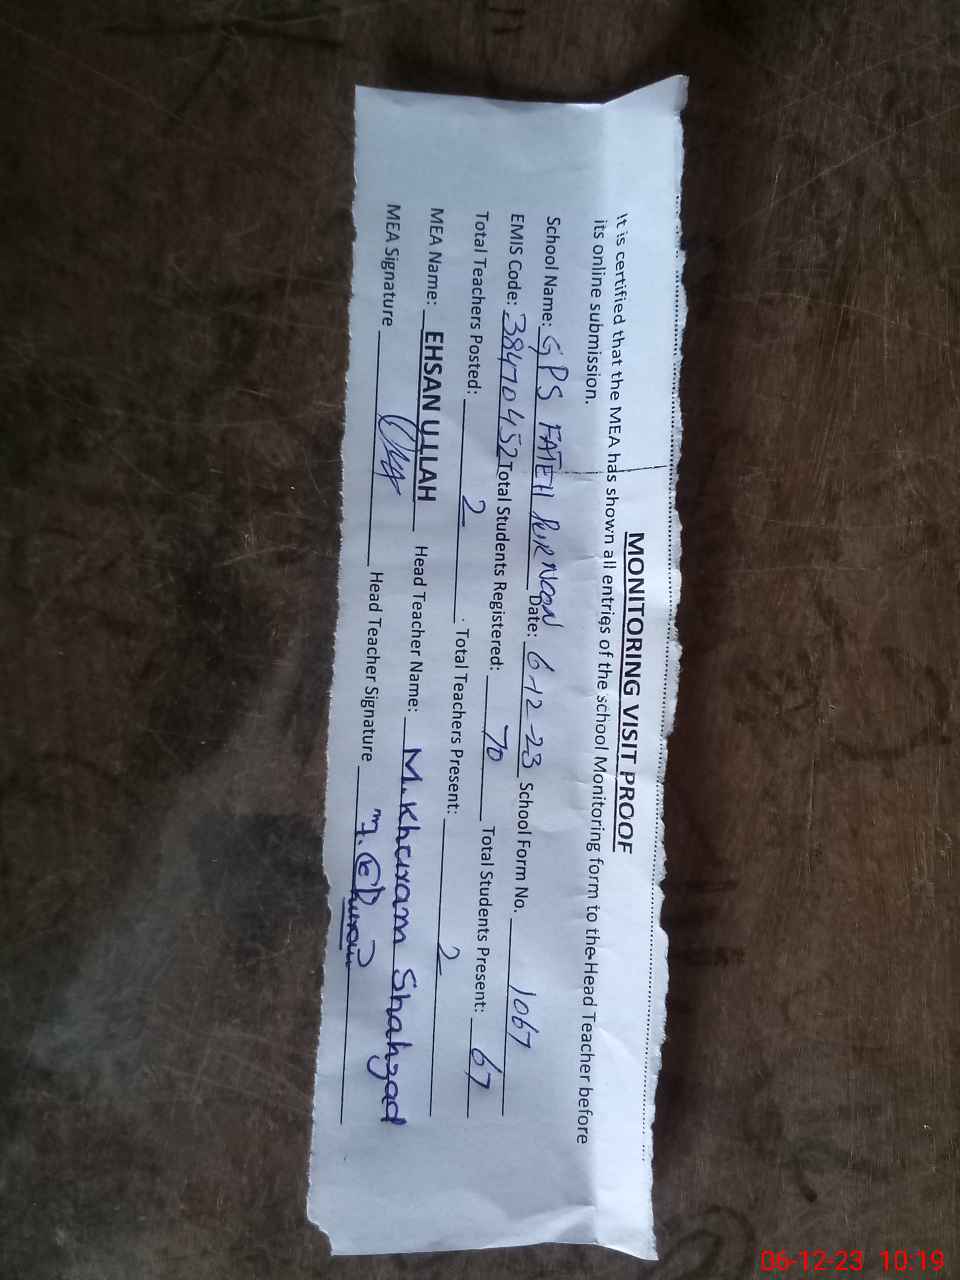 MONITORING VISIT PROOF
It is certified that the MEA has shown all entries of the school Monitoring form to the Head Teacher before
its online submission.
School Name: GPS FATEH PUR NOON Date: 6-12-23 School Form No. 1067
EMIS Code: 38470452 Total Students Registered: 70 Total Students Present: 67
Total Teachers Posted: 2 Total Teachers Present: 2
MEA Name: EHSAN ULLAH Head Teacher Name: M. Khuram Shahzad
MEA Signature Head Teacher Signature
06-12-23 10:19